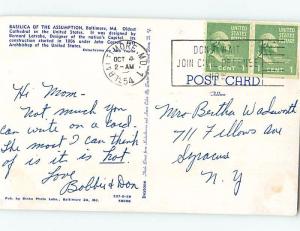 BASILICA OF THE ASSUMPTION, Baltimore, Md. Oldest
Cathedral in the United States. It was designed by
Benard Latrobe, Designer of the nation's Capitol. Its
construction started in 1806 under John Carroll, first
Archbishop of the United States.
BALTIMORE, MD.
OCT 4
2-AM
1954
DON'T WAIT
JOIN
POST CARD
Hi Mom-
Not much you
can write on a card.
The most I can think
of is it is hot.
Love
Bobbie & Don
Mrs Bertha Wadsworth
711 Fellows Ave
Syracuse
N. Y
Pub. by Rinks Photo Labs., Baltimore 24, Md.